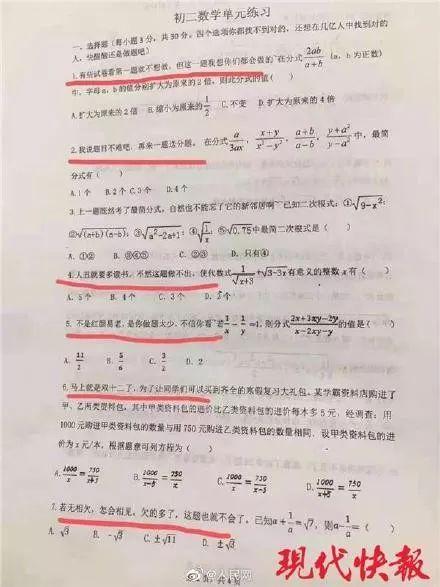 初二数学单元练习
一、选择题(每小题3分,共30分。四个选项你都找不到对的,还想在几亿人中找到对的
人,快醒醒还是做题吧)
1.有些试卷看第一题就不想做,但这一题我想你们都会做的~在分式2ab/(a+b)(a、b为正数)
中,字母a、b的值分别扩大为原来的2倍,则此分式的值(    )
A.扩大为原来的2倍 B.缩小为原来的1/2 C.不变 D.扩大为原来的4倍
2.我说题目不难吧,再来一题送分题。在分式a/3ax,(x+y)/(x²-y²),(a+b)/(a-b),(y+a²)/(y-a²)中,最简
分式有(    )
A.1个 B.2个 C.3个 D.4个
3.上一题既然考了最简分式,自然也不能忘了它的新邻居啊~已知二次根式:①√(9-x²);
②√((a+b)(a-b));③√(a²-2a+1);④√(1/x);⑤√0.75中最简二次根式是(    )
A.①② B.③④⑤ C.②③ D.只有④
4.人丑就要多读书,不然这题做不出,使代数式1/√(x+3)+√(3-3x)有意义的整数x有(    )
A.5个 B.4个 C.3个 D.2个
5.不是红颜易老,是你做题太少,不信你看~若1/x-1/y=4,则分式(2x+3xy-2y)/(x-2xy-y)的值是(    )
A.11/2 B.5/6 C.3/2 D.2
6.马上就是双十二了,为了让同学们可以买到齐全的寒假复习大礼包,某学霸资料店购进了
甲、乙两类资料包,其中甲类资料包的进价比乙类资料包的进价每本多5元,经调查:用
1000元购进甲类资料包的数量与用750元购进乙类资料包的数量相同,设甲类资料包的进
价为x元/本,根据题意可列方程为(    )
7.若无相欠,怎会相见,欠的多了,这题也就不会了,已知a+1/a=√7,则a-1/a=(    )
A.√3 B.-√3 C.±√11 D.±√3
@人民网
现代快报